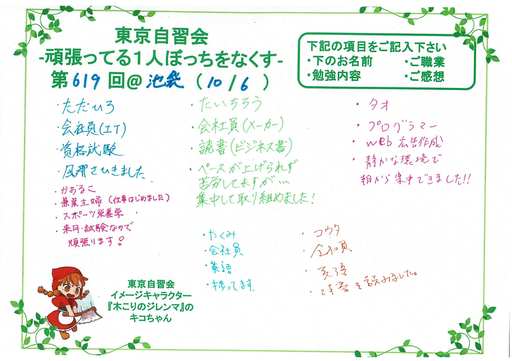 東京自習会
-頑張ってる1人ぼっちをなくす-
第619回@池袋(10/6)
下記の項目をご記入下さい
・下のお名前 ・ご職業
・勉強内容 ・ご感想
・ただひろ
・会社員(IT)
・資格試験
・かおるこ
・兼業主婦(仕事はじめました)
・スポーツ栄養学
・来月試験なので
頑張ります!
・たいちろう
・会社員(メーカー)
・読書(ビジネス書)
・ペースが上げられず
苦労してますが…
集中して取り組めました!
・タオ
・プログラマー
・web広告作成
・静かな環境で
朝から集中できました!!
・たくみ
・会社員
・英語
・コウタ
・会社員
・英語
東京自習会
イメージキャラクター
『木こりのジレンマ』の
キコちゃん